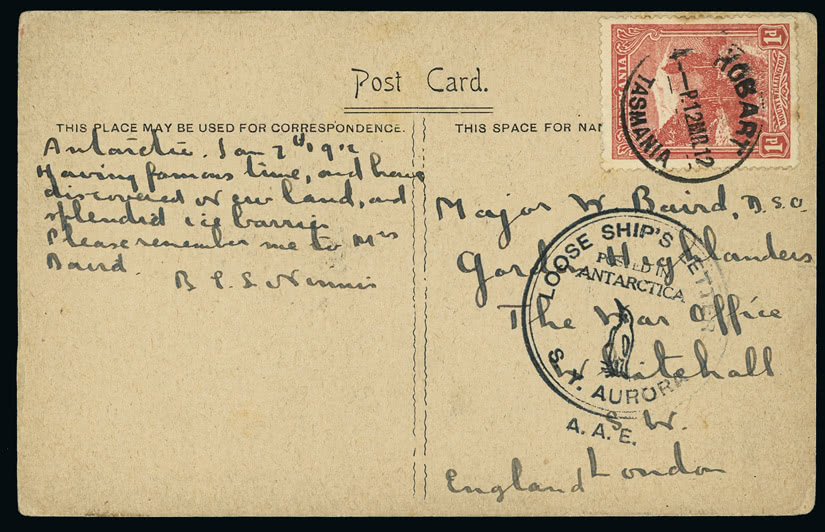 Post Card.
THIS PLACE MAY BE USED FOR CORRESPONDENCE.
Antarctic. Jan 7th 1912
Having famous time, and have
discovered New land, and
splendid ice barrier
Please remember me to Mrs
Baird.
B E S Ninnis
THIS SPACE FOR NAM
1d 1d
TASMANIA
MOUNT WELLINGTON
HOBART
4-P.12MR.12
TASMANIA
Major W. Baird, D.S.O.
Gordon Highlanders
The War Office
Whitehall
S. W.
London
England
LOOSE SHIP'S LETTER
POSTED IN
ANTARCTICA
S.Y. AURORA
A.A.E.